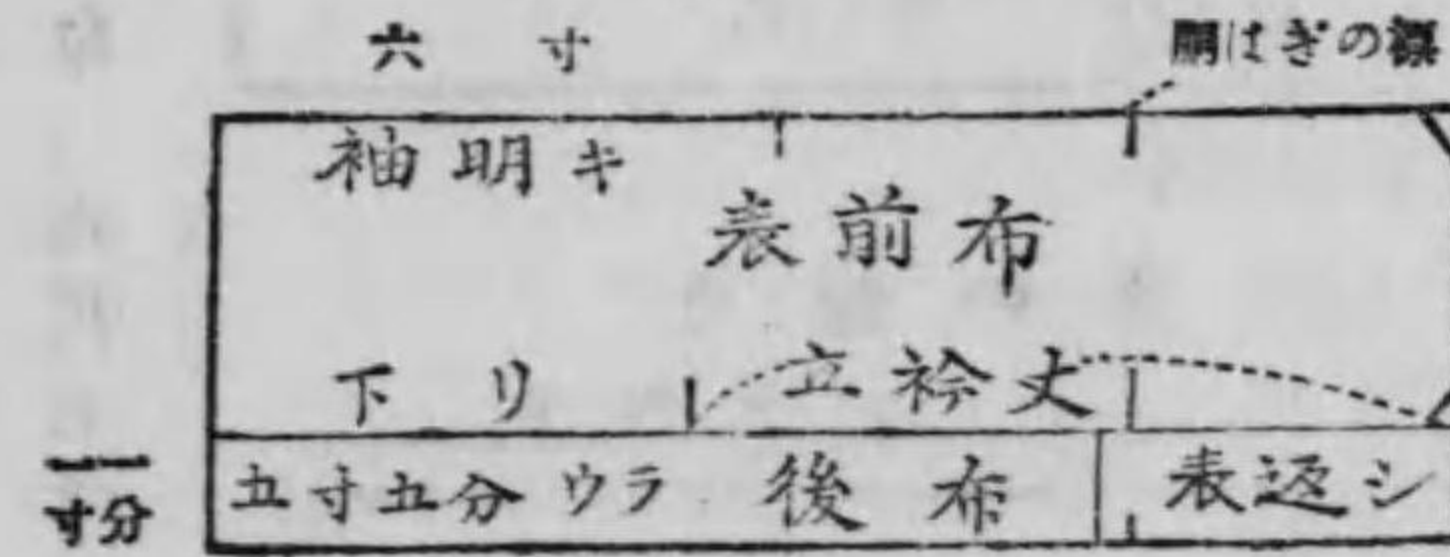 六寸
胴はぎの標
袖明キ
表前布
下リ
立衿丈
一寸一分
五寸五分 ウラ 後布
表返シ